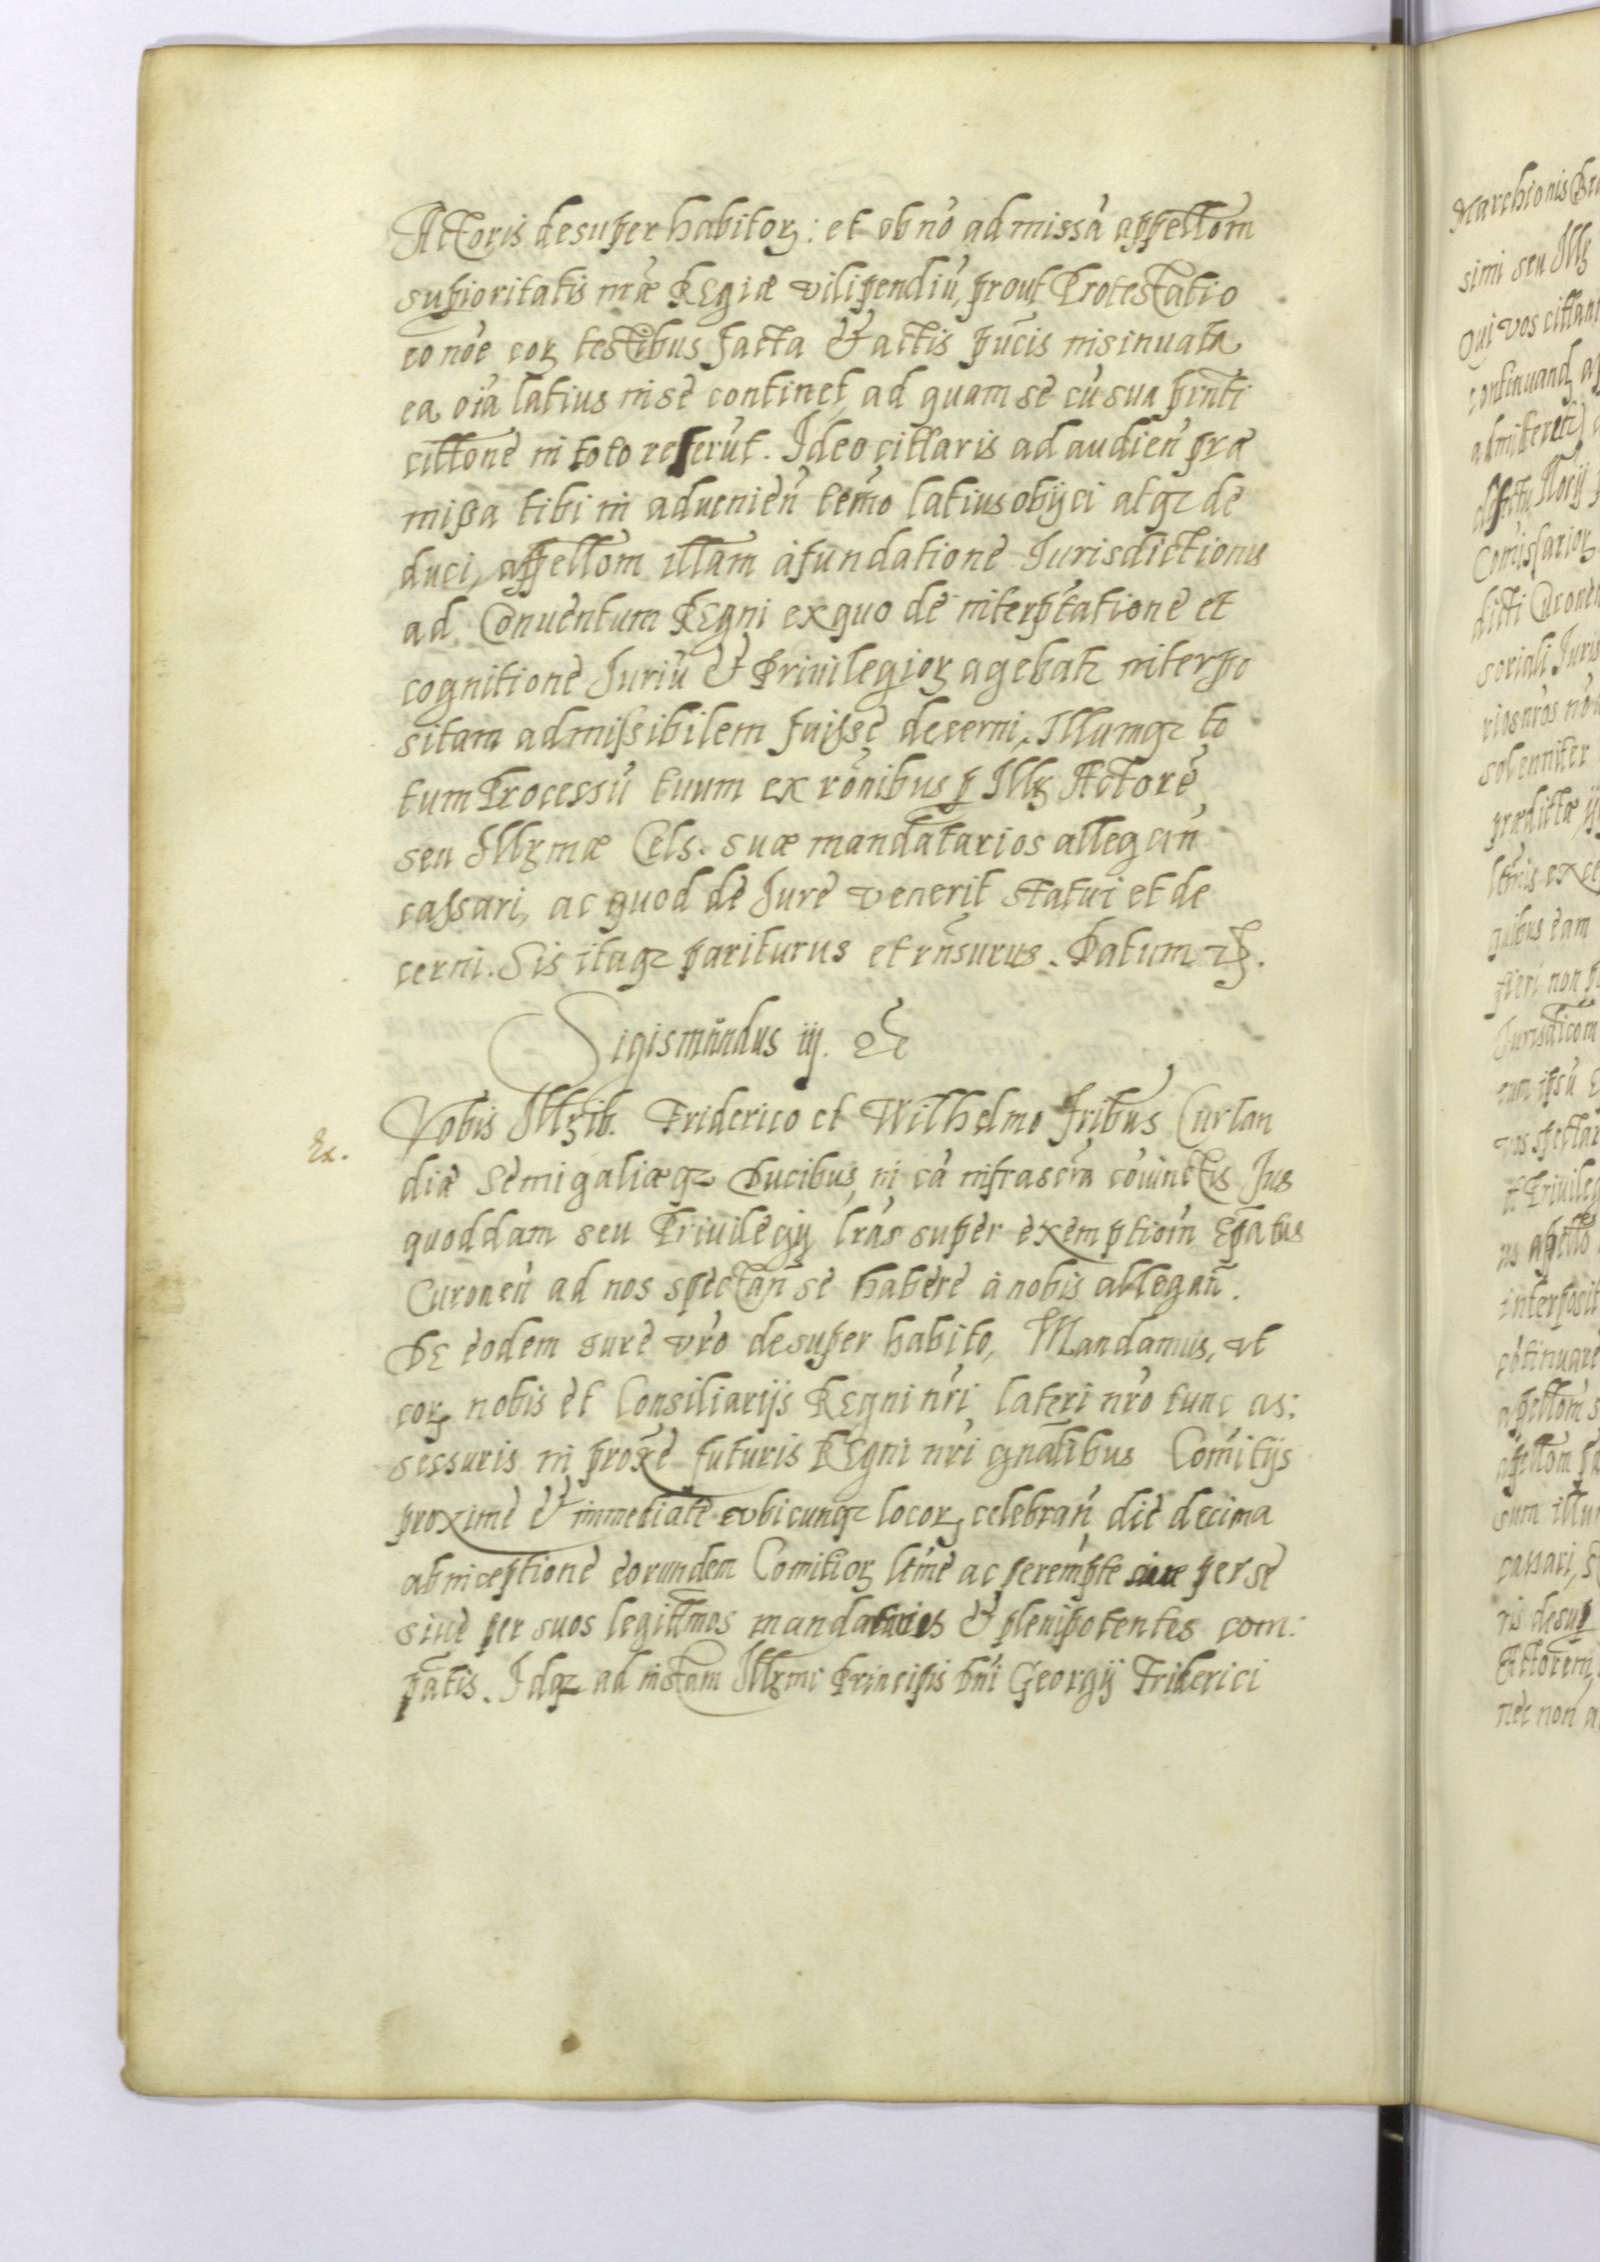 Actoris desuper habitor: et ob nō admissā appellōm
supioritatis nrāe Regiæ vilipendiū, prout Protestatio
eo nōe cor testibus facta & actis pūcis insinuata
ea oīa latius in se continet, ad quam se cū sua pnti
cittōne in toto referūt. Ideo cittaris ad audien præ
missa tibi in advenien termo latius obijci atq de
duci, appellōm illam à fundatione Jurisdictionis
ad Conventum Regni ex quo de interptatione et
cognitione Juriū & Privilegior agebat interpo
sitam admissibilem fuisse decerni, Illumq to
tum Processū tuum ex rōnibus p Illm Actorē
seu Illmæ Cels. suæ mandatarios allegan
cassari, ac quod de Jure venerit statui et de
cerni. Sis itaq pariturus et rnsurus. Datum etc.
Sigismūndus iij. etc
Ex.
Vobis Illrib. Friderico et Wilhelmo fribus Curlan
diæ Semigaliæq Ducibus, in cā infrascrā coniunctis Jus
quoddam seu Privilegij lras super exemptiom Epatus
Curonen ad nos spectan se habere à nobis allegan.
De eodem iure vro desuper habito, Mandamus, vt
cor nobis et Consiliarijs Regni nri lateri nro tunc as:
sessuris in proxe futuris Regni nri gnalibus Comitijs
proxime & immediate vbicunq locor celebran die decima
ab inceptione eorundem Comitior ltme ac perempte siue per se
siue per suos legittmos mandatarios & plenipotentes com:
patis. Idq ad instam Illrmi Principis Dni Georgij Friderici
Marchionis
simi seu Ill
Qui vos cittant
continuand
admitteret
Comissarior
dicti Curonen
solenniter
prædictæ
quibus eam
fieri non
eum ipsū
interposit
cōtinuare
sum illum
cassari,
ris desup
nec non